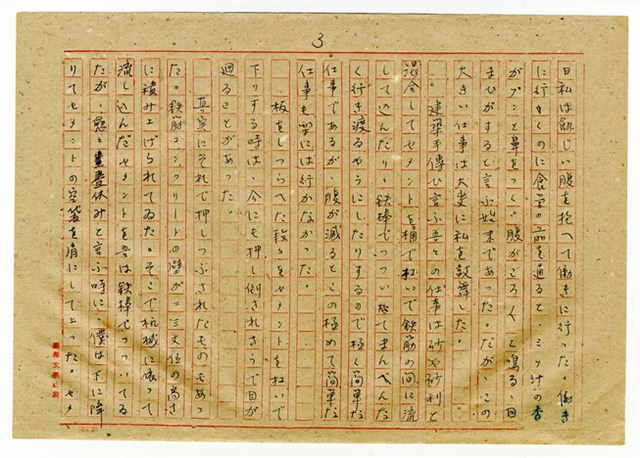 3
日私は飢じい腹を抱へて働きに行った。働き
に行くのに食堂の前を通ると、ミソ汁の香
がプンと鼻をつく。腹がごろ〱と鳴る、目
まひがすると言ふ始末であった。だが、この
大きい仕事は大案に私を鼓舞した。
建築手傳ひと言ふ吾々の仕事は砂や砂利と
混合してセメントを桶で担いで鉄筋の間に流
して込んだり、鉄棒でつつい
く行き渡るやうにしたりするので極く簡単な
仕事であるが、腹が減るとこの極めて簡単な
仕事も楽には行かなかった。
板をしつらへた段々をセメントを担いで
下りする時は、今にも押し倒されさうで目が
廻ることがあった。
真実にそれで押しつぶされたものもあっ
た。鉄筋コンクリートの壁が二三丈位の高さ
に積み上げられてゐた。そこで機械に依って
流し込んだセメントを吾は鉄棒でつついてゐ
たが、愈々晝休みと言ふ時に、僕は下に降
りてセメントの空袋を肩にして上った。セメ